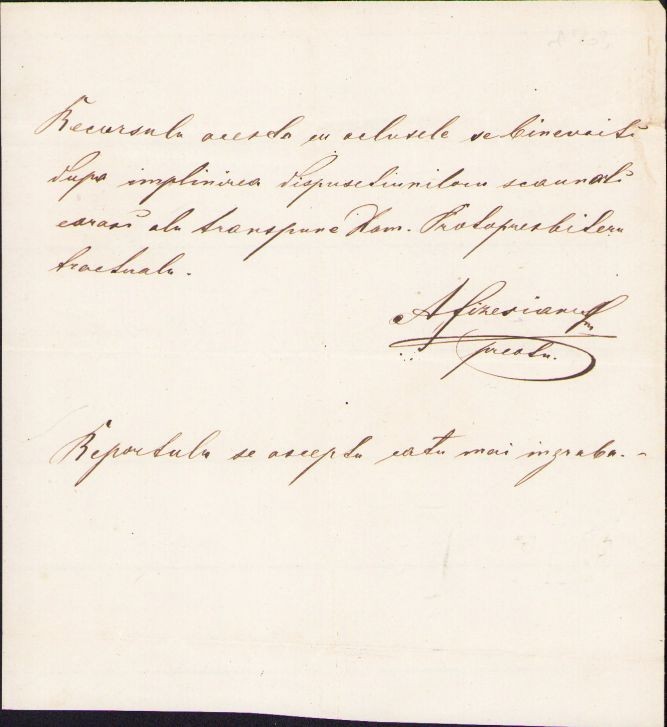 Recursulu acesta cu aclusele se binevoiti
dupa implinirea dispusetiuniloru
earasi alu transpune Dom. Protopresbiteru
tractualu.
preotu.
Reportulu se ascepta catu mai ingraba.-